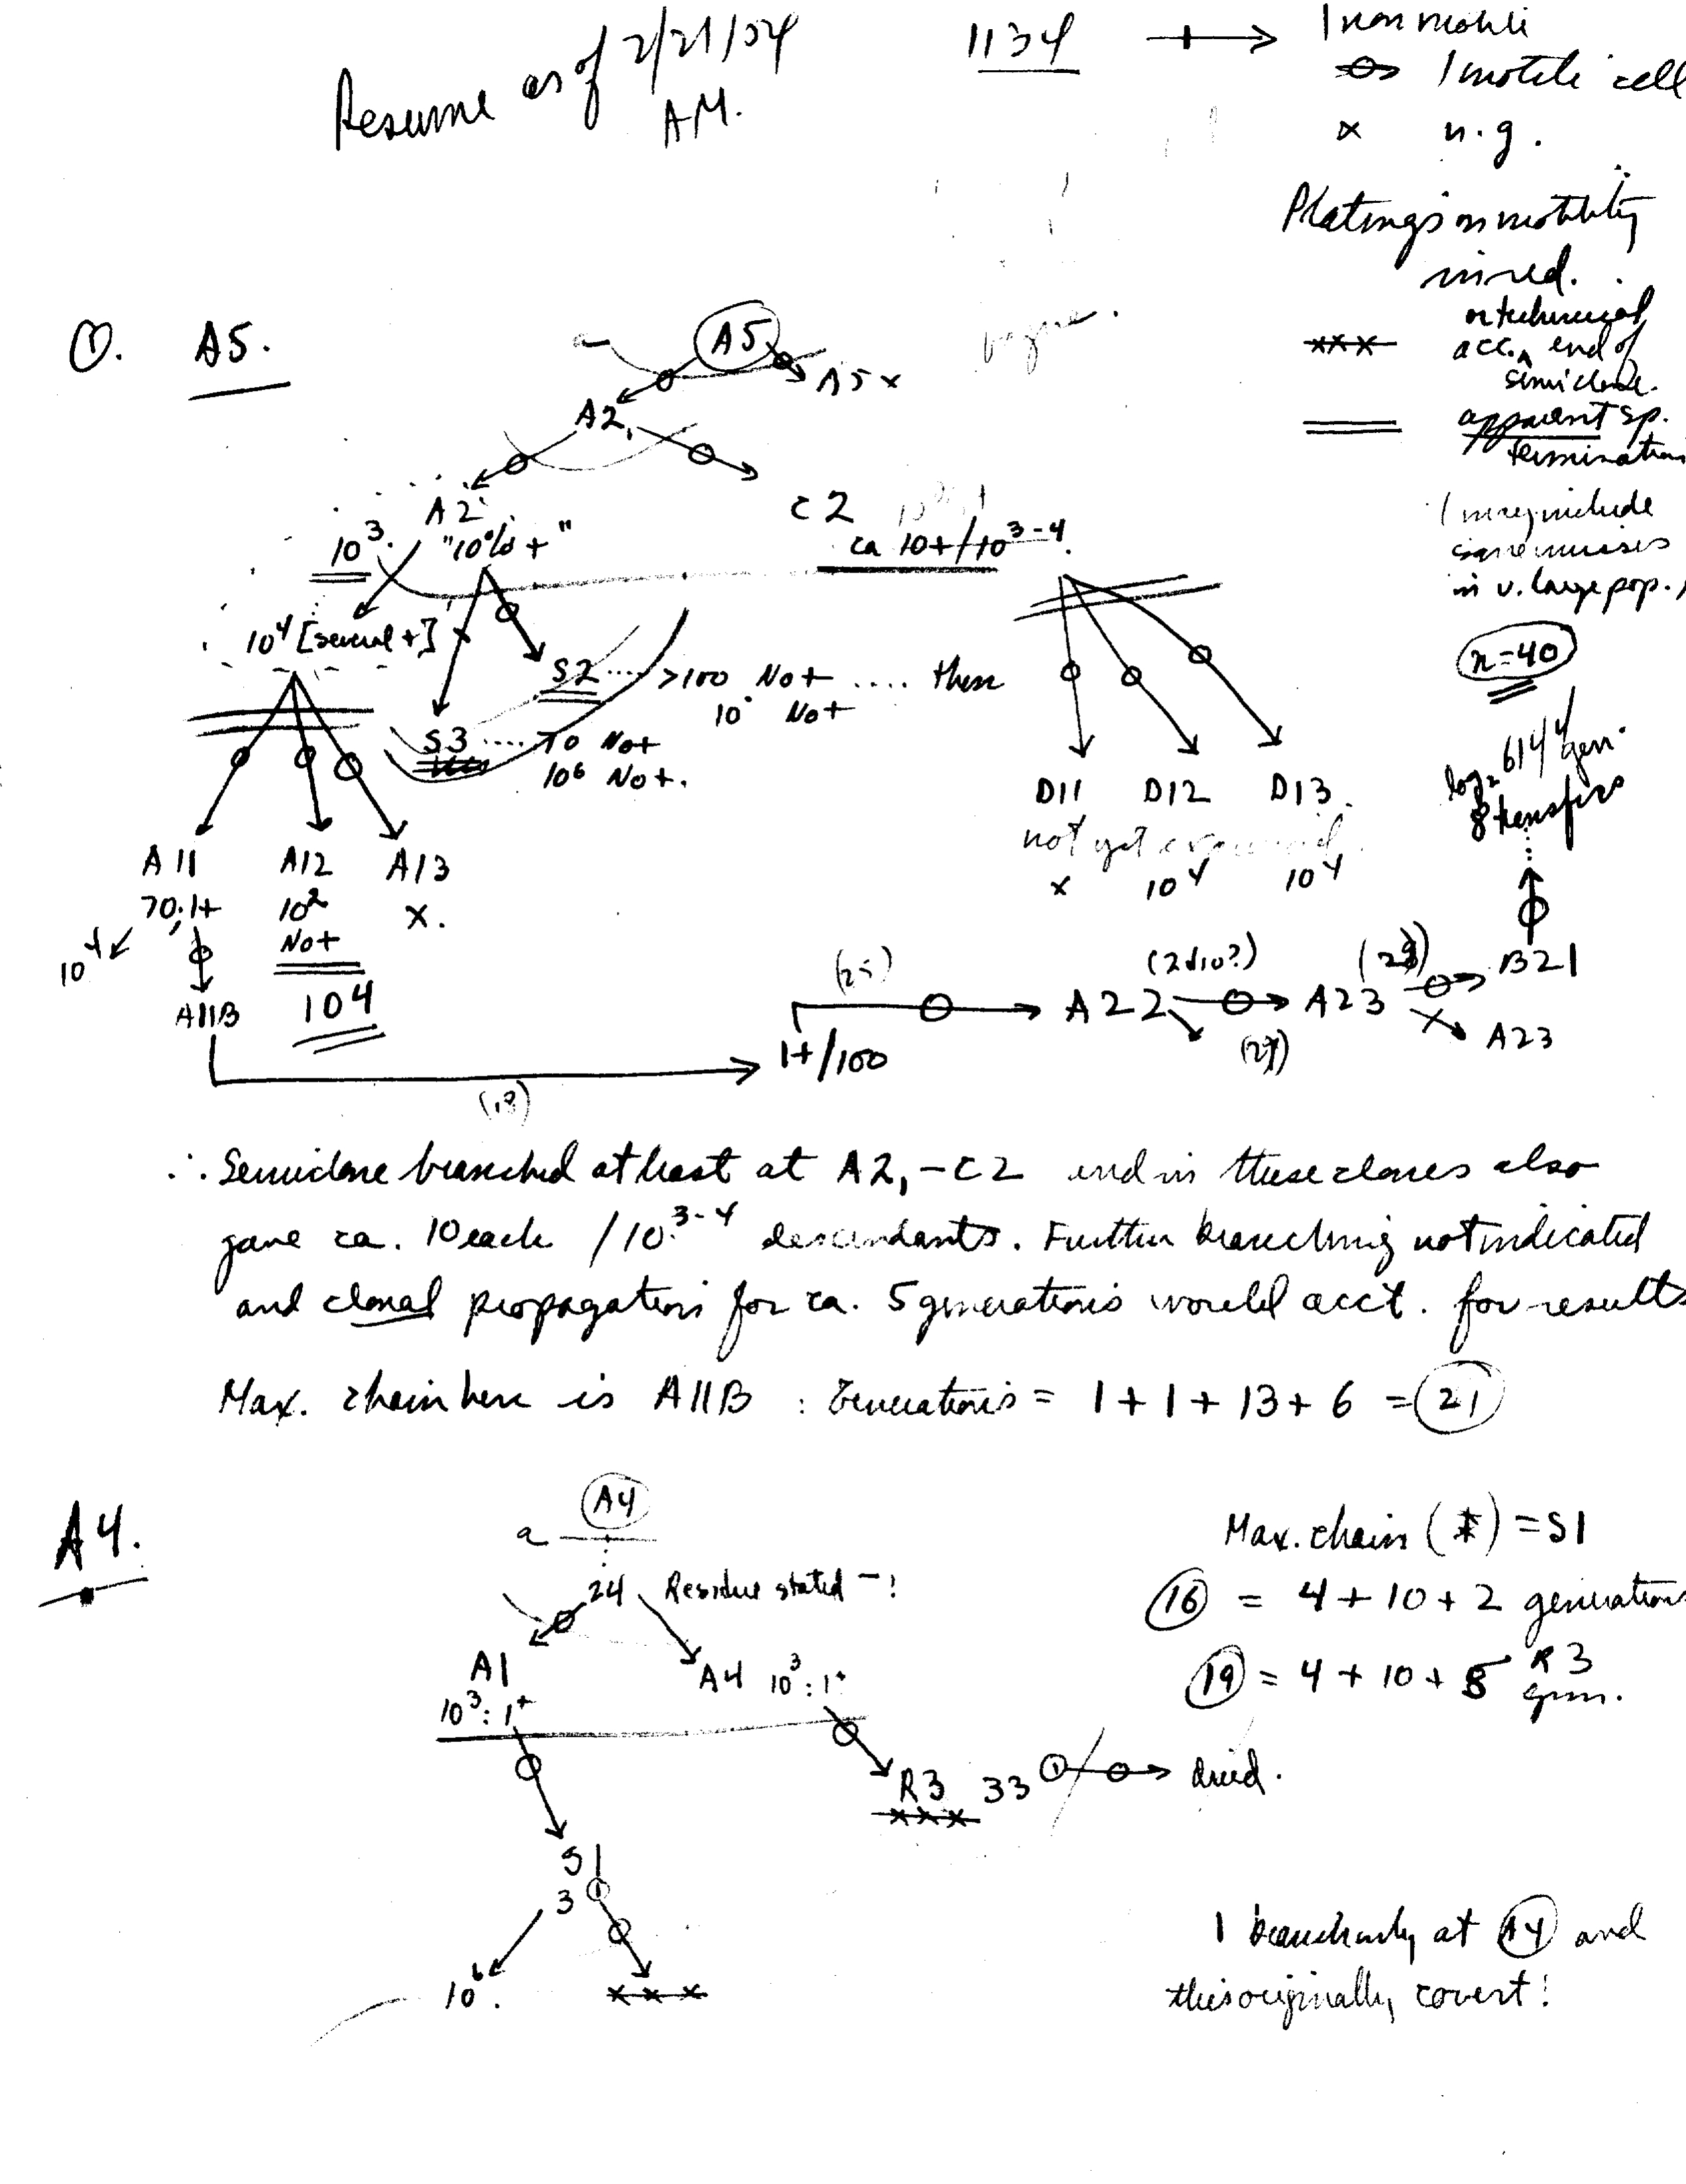 Resume as of 2/21/54
AM.
1134
1 non motile
1 motile cell
x n.g.
Platings on motility
med.
or technical
xxx acc. end of
semiclone.
apparent sp.
termination
1 may include
in v. large pop.,
n=40
log₂ 614 gen.
8 transfers
①. A5.
a
A5
A5 x
A2,
A2
C2
10³.
"10% +"
ca 10+/10³⁻⁴.
10⁴ [several +]
S2 .... >100 No+ .... then
10 No+
S3 .... 70 No+
10⁶ No+.
D11 D12 D13.
not yet examined
x 10⁴ 10⁴
A11 A12 A13
70:1+ 10² x.
No+
10⁴
A11B 104
1+/100
(25)
A22
(27)
A23
B21
A23
∴ Semiclone branched at least at A2,-C2 and in these clones also
gave ca. 10 each /10³⁻⁴ descendants. Further branching not indicated
and clonal propagation for ca. 5 generations would acct. for results
Max. chain here is A11B : Generations = 1+1+13+6 = 21
A4.
a A4
24 Residue stated - !
A1
10³: 1+
A4 10³: 1+
R3 33 dried.
xxx
S1
3
10⁶.
xxx
Max. chain (*) = S1
16 = 4+10+2 generations
19 = 4+10+5 R3
gen.
1 branch only at A4 and
this originally covert!